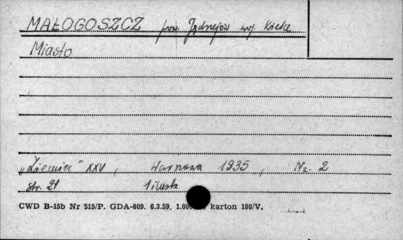 MAŁOGOSZCZ pow. Jędrzejów woj. Kielce
Miasto
„Ziemia" XXV, Warszawa 1935, Nr. 2
str. 21 1 ilustr.
CWD B-15b Nr 515/P. GDA-809. 6.3.59. 1.00 karton 180/V.